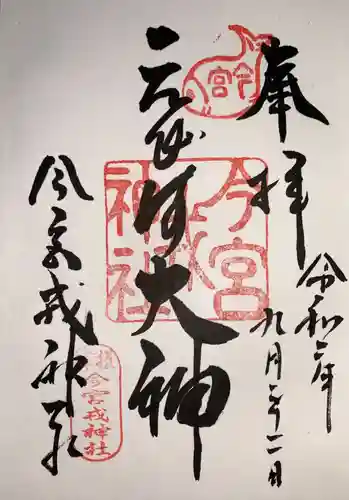 奉拝
令和二年
九月二十二日
ゑびす大神
今宮戎神社
今宮
今宮戎神社
今宮戎神社